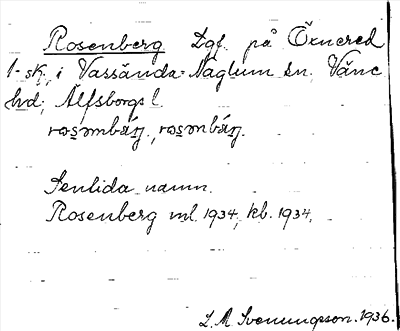 Rosenberg Lgf. på Öxnered
1-sk; i Vassända-Naglum sn. Väne
hd; Älfsborgs l.
rosombárj., rosombárj.
Sentida namn.
Rosenberg ml. 1934, kb. 1934.
L. M. Svenungsson. 1936.